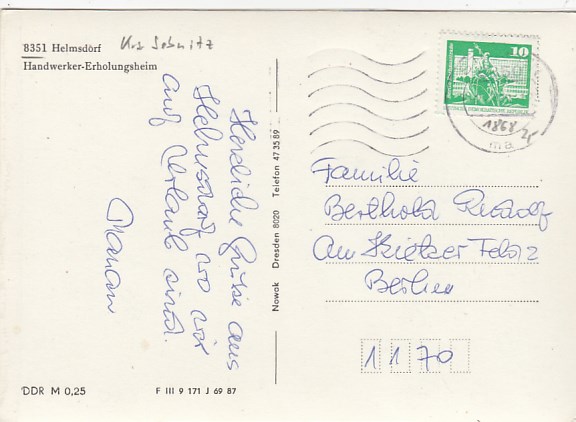 8351 Helmsdorf Krs Sebnitz
Handwerker-Erholungsheim
Herzliche Grüße aus
Helmsdorf wo wir
auf Urlaub sind.
10
1868
Familie
Berthold Rudolf
Am Kietzer Feld 2
Berlin
1170
Nowok Dresden 8020 Telefon 47 35 89
DDR M 0,25
F III 9 171 J 69 87